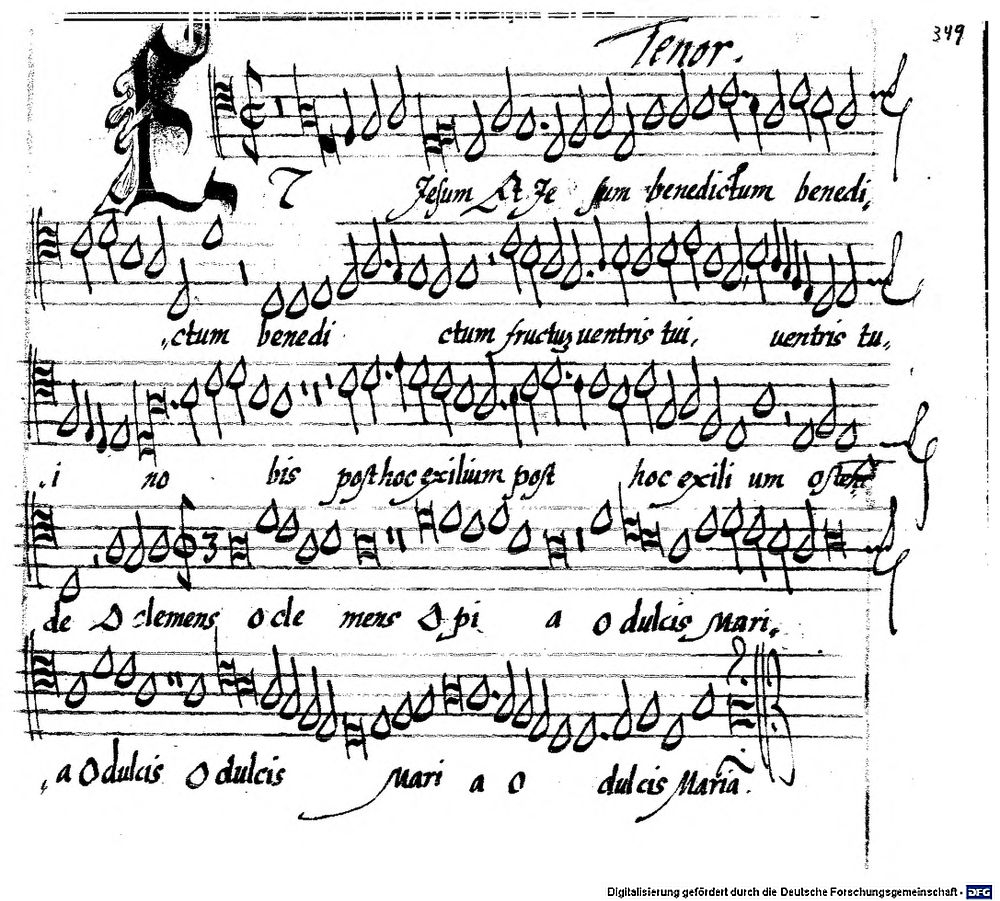 Tenor.
349
Et Jesum Et Je sum benedictum benedi,
,ctum benedi ctum fructuz uentris tui, uentris tu,
,i no bis post hoc exilium post hoc exili um osten
de O clemens o cle mens O pi a o dulcis Mari,
,a O dulcis O dulcis Mari a o dulcis Maria.
Digitalisierung gefördert durch die Deutsche Forschungsgemeinschaft - DFG